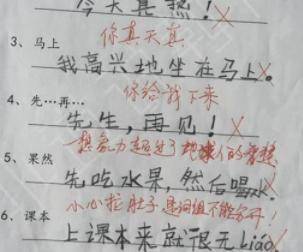 今天真热！
3、马上
你真天真
我高兴地坐在马上。
4、先…再…
你给我下来
先生，再见！
想象力超过了地球人的
5、果然
先吃水果，然后喝水。
小心拉肚子 是词组不能分开！
6、课本
上课本来就很无liáo。